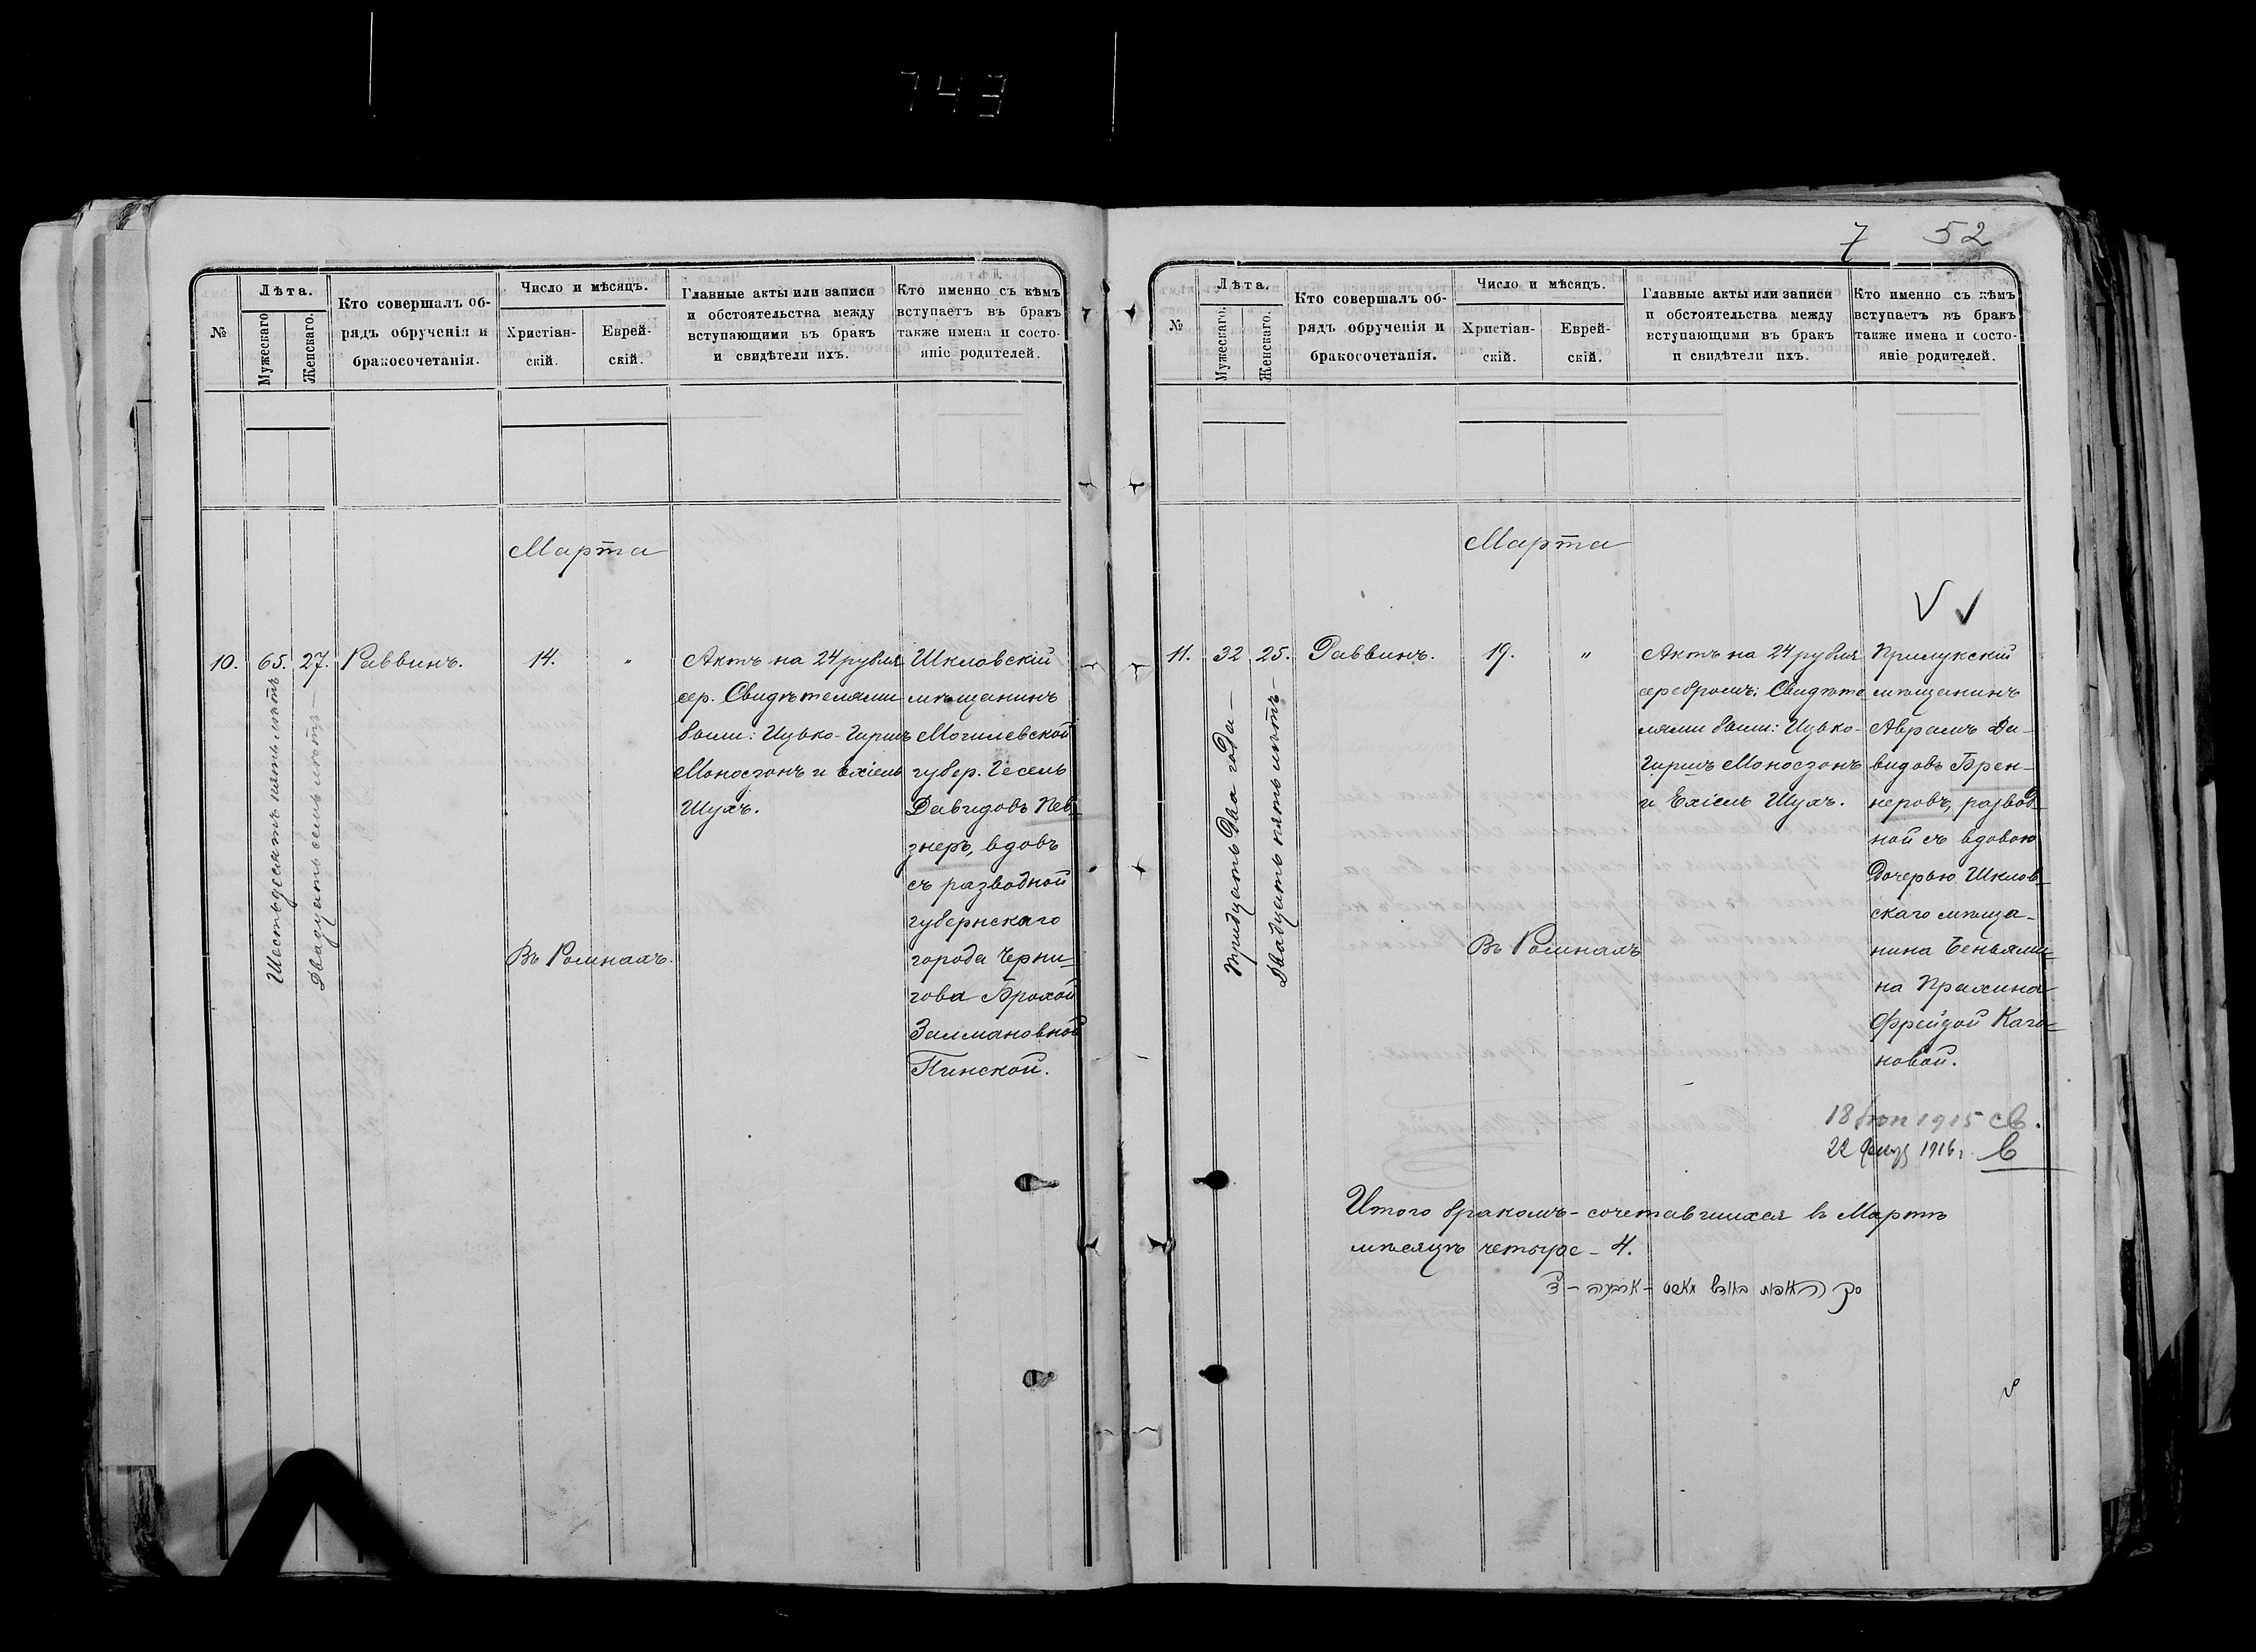 743
№
Лѣта.
Мужескаго.
Женскаго.
Кто совершалъ об-
рядъ обрученія и
бракосочетанія.
Число и мѣсяцъ.
Христіан-
скій.
Еврей-
скій.
Главные акты или записи
и обстоятельства между
вступающими въ бракъ
и свидѣтели ихъ.
Кто именно съ кѣмъ
вступаетъ въ бракъ
также имена и состо-
яніе родителей.
Марта
10.
65.
Шестьдесятъ пять лѣтъ
27.
Двадцать семь лѣтъ —
Раввинъ.
14.
"
Въ Ромнахъ.
Актъ на 24 рубля
сер. Свидѣтелями
были: Ицько-Гиршъ
Моносзонъ и Ехіель
Шухъ.
Шкловскій
мѣщанинъ
Могилевской
губер. Гесель
Давидовъ Пев-
знеръ, вдовъ
съ разводной
губернскаго
города Черни-
гова Брохой
Залмановной
Пинской.
7 52
№
Лѣта.
Мужескаго.
Женскаго.
Кто совершалъ об-
рядъ обрученія и
бракосочетанія.
Число и мѣсяцъ.
Христіан-
скій.
Еврей-
скій.
Главные акты или записи
и обстоятельства между
вступающими въ бракъ
и свидѣтели ихъ.
Кто именно съ кѣмъ
вступаетъ въ бракъ
также имена и состо-
яніе родителей.
Марта
11.
32
Тридцать два года —
25.
Двадцать пять лѣтъ —
Раввинъ.
19.
"
Въ Ромнахъ
Актъ на 24 рубля
серебромъ: Свидѣте-
лями были: Ицько-
Гиршъ Моносзонъ
и Ехіель Шухъ.
Прилукскій
мѣщанинъ
Абрамъ Да-
видовъ Брен-
неровъ, развод-
ной съ вдовою
Дочерью Шклов-
скаго мѣща-
нина Беньями-
на Прахина
Фрейдой Кага-
новой.
18 1915 св.
22 1916 г. в
Итого бракомъ-сочетавшихся въ Мартѣ
мѣсяцѣ четыре - 4.